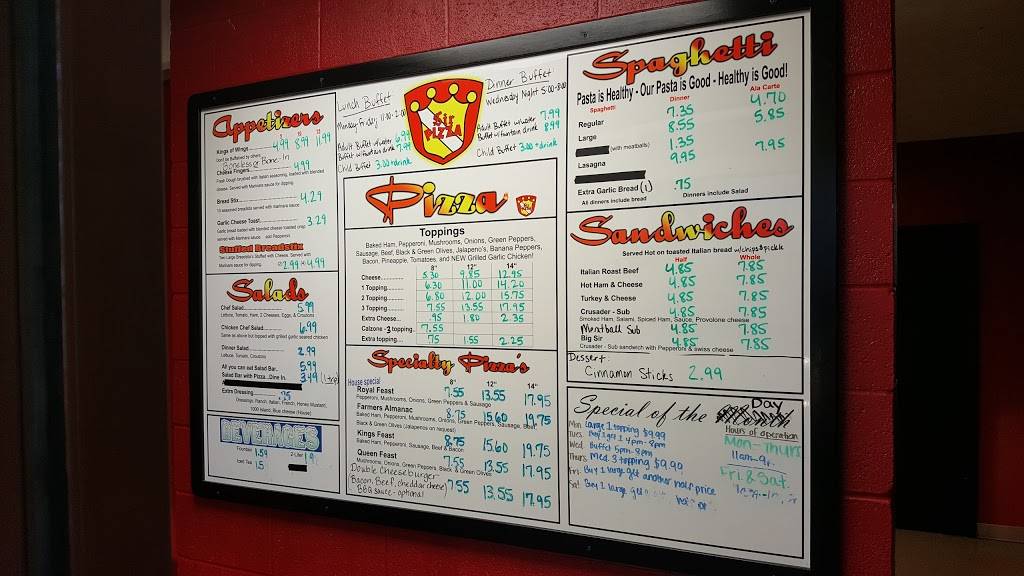 Appetizers
5 10 15
Kings of Wings 4.99 8.99 11.99
Don't be Buffaloed by others
Boneless or Bone-In
Cheese Fingers 4.99
Fresh Dough brushed with Italian seasoning, loaded with blended
cheese. Served with Marinara sauce for dipping.
Bread Stix 4.29
10 seasoned breadstix served with marinara sauce
Garlic Cheese Toast 3.29
Garlic bread loaded with blended cheese toasted crisp
served with Marinara sauce add Pepperoni
Stuffed Breadstix
Two Large Breadstix Stuffed with Cheese. Served with
Marinara sauce for dipping. 2.99 4.99
Salads
Chef Salad 5.99
Lettuce, Tomato, Ham, 2 Cheeses, Eggs, & Croutons
Chicken Chef Salad 6.99
Same as above but topped with grilled garlic seared chicken
Dinner Salad 2.99
Lettuce, Tomato, Croutons
All you can eat Salad Bar 5.99
Salad Bar with Pizza...Dine In 3.49
Extra Dressing .75
Dressings: Ranch, Italian, French, Honey Mustard,
1000 Island, Blue cheese (House)
BEVERAGES
Fountain 1.59 2 Liter
Iced Tea 1.5
Lunch Buffet
Monday-Friday 11:00-2:00
Adult Buffet w/water 6.99
Buffet w/fountain drink 7.99
Child Buffet 3.00 + drink
Sir PIZZA
Dinner Buffet
Wednesday Night 5:00-8:00
Adult Buffet w/water 7.99
Buffet w/fountain drink 8.99
Child Buffet 3.00 + drink
Pizza
Toppings
Baked Ham, Pepperoni, Mushrooms, Onions, Green Peppers,
Sausage, Beef, Black & Green Olives, Jalapeno's, Banana Peppers,
Bacon, Pineapple, Tomatoes, and NEW Grilled Garlic Chicken!
8" 12" 14"
Cheese 5.30 9.85 12.95
1 Topping 6.30 11.00 14.20
2 Topping 6.80 12.00 15.75
3 Topping 7.55 13.55 17.95
Extra Cheese .95 1.80 2.35
Calzone - 3 topping 7.55
Extra topping .75 1.55 2.25
Specialty Pizza's
House special 8" 12" 14"
Royal Feast 7.55 13.55 17.95
Pepperoni, Mushrooms, Onions, Green Peppers & Sausage
Farmers Almanac 8.75 15.60 19.75
Baked Ham, Pepperoni, Mushrooms, Onions, Green Peppers, Sausage, Beef,
Black & Green Olives (Jalapenos on request)
Kings Feast 8.75 15.60 19.75
Baked Ham, Pepperoni, Sausage, Beef & Bacon
Queen Feast 7.55 13.55 17.95
Mushrooms, Onions, Green Peppers, Black & Green Olives
Double Cheeseburger
(Bacon, Beef, cheddar cheese) 7.55 13.55 17.95
BBQ sauce - optional
Spaghetti
Pasta is Healthy - Our Pasta is Good - Healthy is Good!
Spaghetti Dinner Ala Carte
Regular 7.35 4.70
Large 8.55 5.85
(with meatballs) 1.35
Lasagna 9.95 7.95
Extra Garlic Bread (1) .75
All dinners include bread Dinners include Salad
Sandwiches
Served Hot on toasted Italian bread w/chips & pickle
Half Whole
Italian Roast Beef 4.85 7.85
Hot Ham & Cheese 4.85 7.85
Turkey & Cheese 4.85 7.85
Crusader - Sub 4.85 7.85
Smoked Ham, Salami, Spiced Ham, Sauce, Provolone cheese
Meatball Sub 4.85 7.85
Big Sir 4.85 7.85
Crusader - Sub sandwich with Pepperoni & swiss cheese
Dessert:
Cinnamon Sticks 2.99
Special of the Day
Mon. Large 1 topping $9.99
Tues. Buy 1 get 1 4pm-8pm
Wed. Buffet 5pm-8pm
Thurs Med. 3 topping $9.99
Fri Buy 1 large get another half price
Sat Buy 1 large get
Hours of operation
Mon-Thurs
11am-9
Fri & Sat.